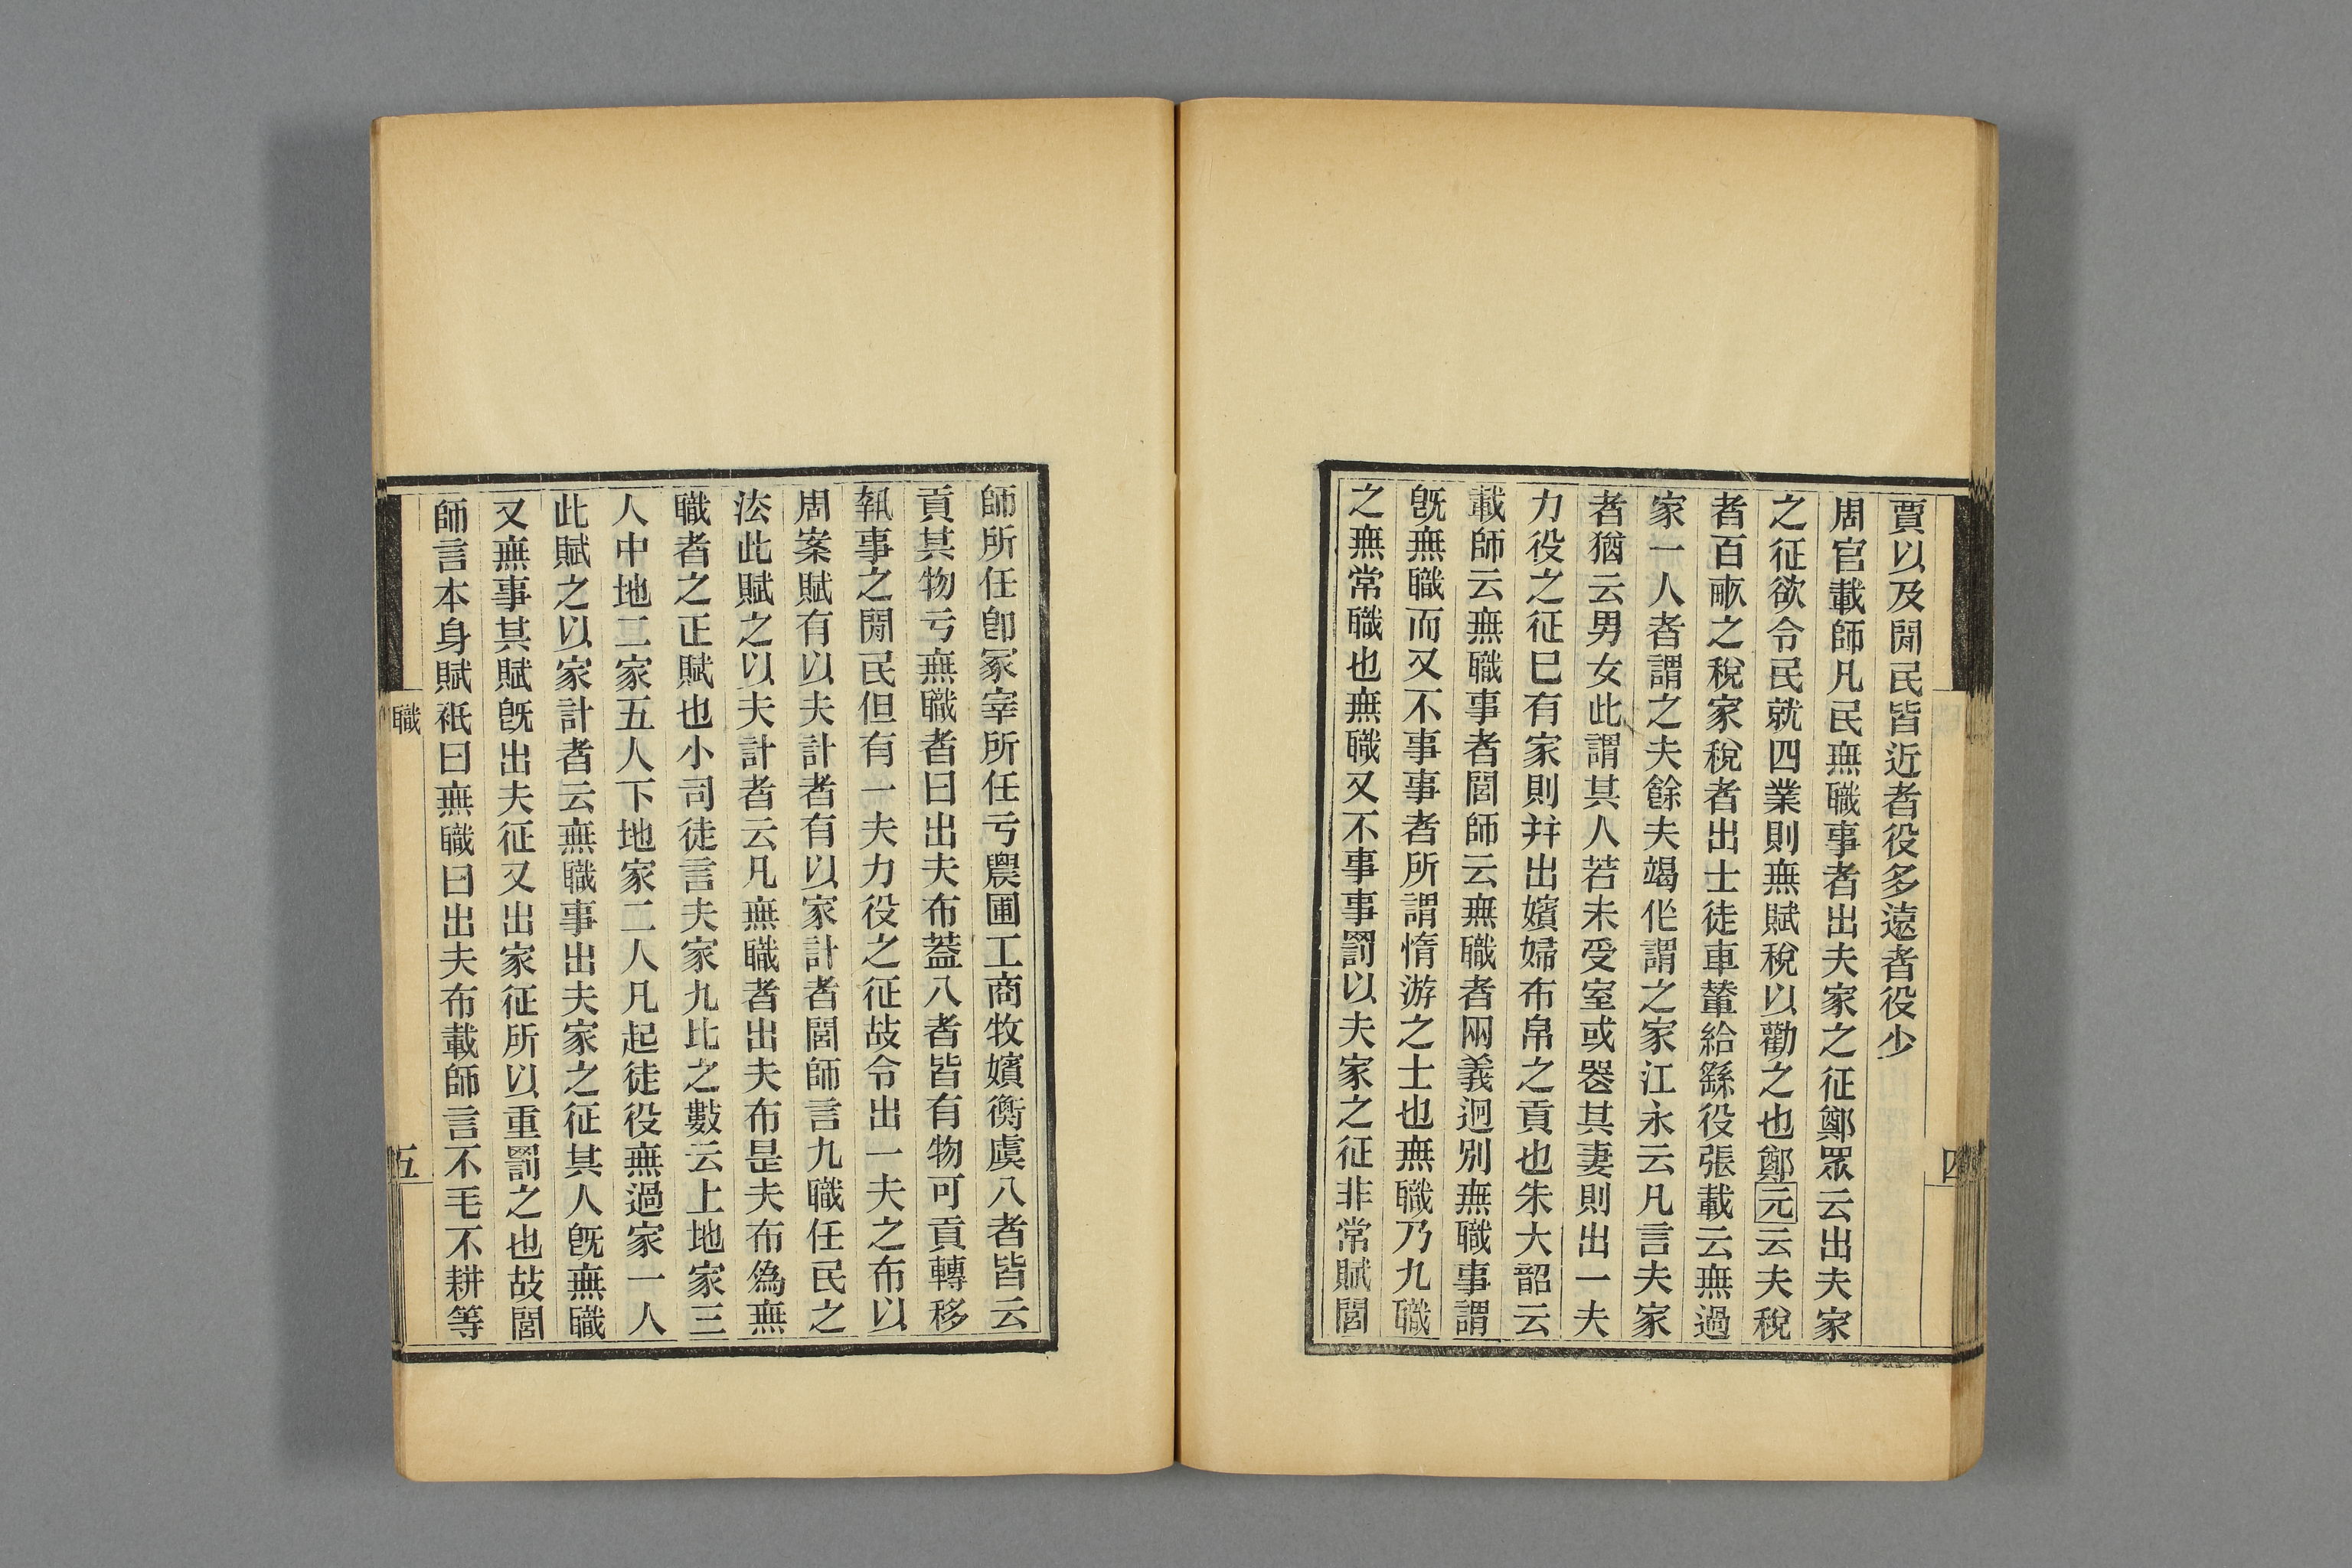 賈以及閒民皆近者役多遠者役少
周官載師凡民無職事者出夫家之征鄭眾云出夫家
之征欲令民就四業則無賦稅以勸之也鄭元云夫稅
者百畞之稅家稅者出士徒車輦給繇役張載云無過
家一人者謂之夫餘夫竭作謂之家江永云凡言夫家
者猶云男女此謂其人若未受室或喪其妻則出一夫
力役之征巳有家則幷出嬪婦布帛之貢也朱大韶云
載師云無職事者閭師云無職者兩義迥別無職事謂
旣無職而又不事事者所謂惰游之士也無職乃九職
之無常職也無職又不事事罰以夫家之征非常賦閭
師所任卽冢宰所任亏農圃工商牧嬪衡虞八者皆云
貢其物亏無職者曰出夫布葢八者皆有物可貢轉移
執事之閒民但有一夫力役之征故令出一夫之布以
周案賦有以夫計者有以家計者閭師言九職任民之
法此賦之以夫計者云凡無職者出夫布是夫布爲無
職者之正賦也小司徒言夫家九比之數云上地家三
人中地二家五人下地家二人凡起徒役無過家一人
此賦之以家計者云無職事出夫家之征其人旣無職
又無事其賦旣出夫征又出家征所以重罰之也故閭
師言本身賦祇曰無職曰出夫布載師言不毛不耕等
職
五
四